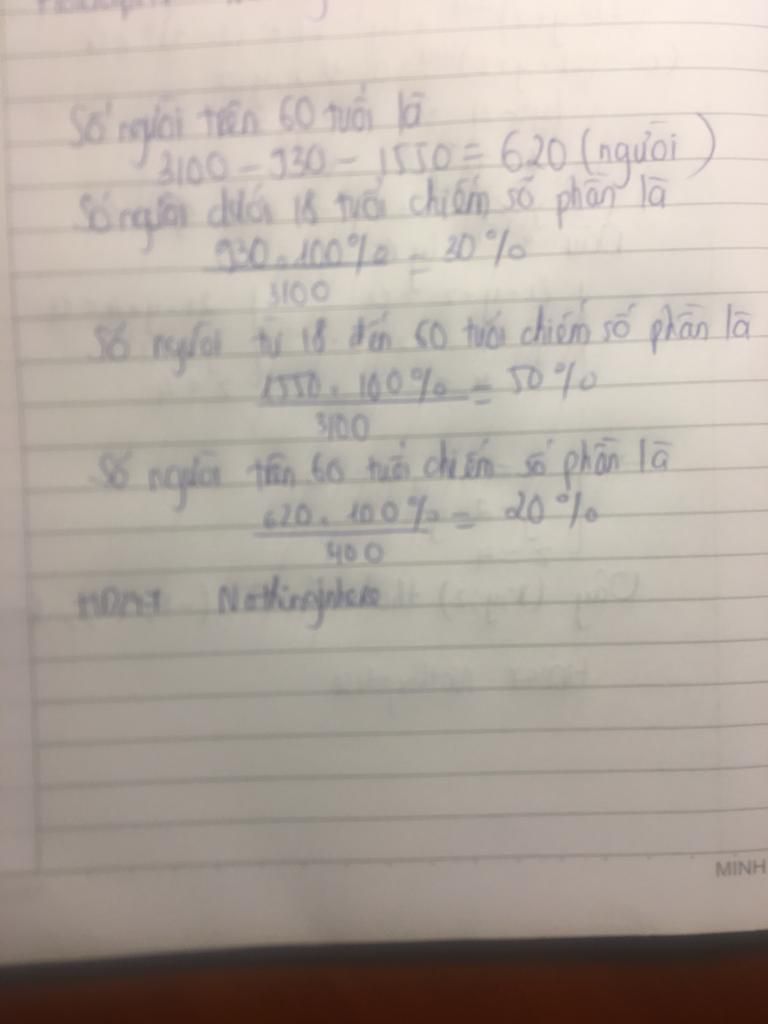 Số người trên 60 tuổi là
3100 - 930 - 1550 = 620 (người)
Số người dưới 18 tuổi chiếm số phần là
930 . 100% = 30%
3100
Số người từ 18 đến 60 tuổi chiếm số phần là
1550 . 100% = 50%
3100
Số người trên 60 tuổi chiếm số phần là
620 . 100% = 20%
MINH